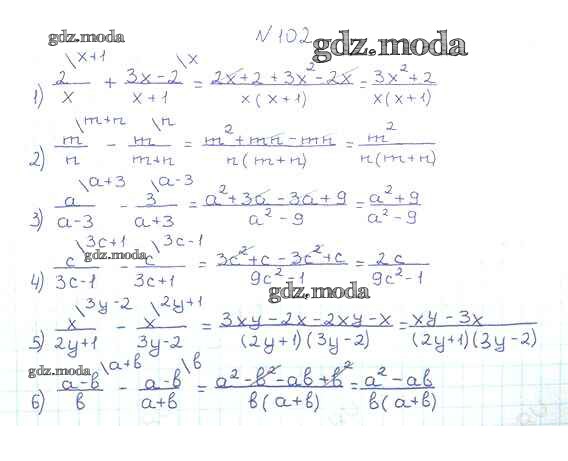 gdz.moda № 102 gdz.moda
1) 2/x \x+1 + 3x-2/x+1 \x = 2x+2+3x²-2x/x(x+1) = 3x²+2/x(x+1)
2) m/n \m+n - m/m+n \n = m²+mn-mn/n(m+n) = m²/n(m+n)
3) a/a-3 \a+3 - 3/a+3 \a-3 = a²+3a-3a+9/a²-9 = a²+9/a²-9
4) c/3c-1 \3c+1 - c/3c+1 \3c-1 = 3c²+c-3c²+c/9c²-1 = 2c/9c²-1
gdz.moda
gdz.moda
5) x/2y+1 \3y-2 - x/3y-2 \2y+1 = 3xy-2x-2xy-x/(2y+1)(3y-2) = xy-3x/(2y+1)(3y-2)
gdz.moda
6) a-b/b \a+b - a-b/a+b \b = a²-b²-ab+b²/b(a+b) = a²-ab/b(a+b)